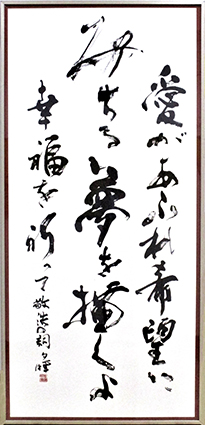 愛があふれ希望に
みちる夢を描くよ
幸福を祈って